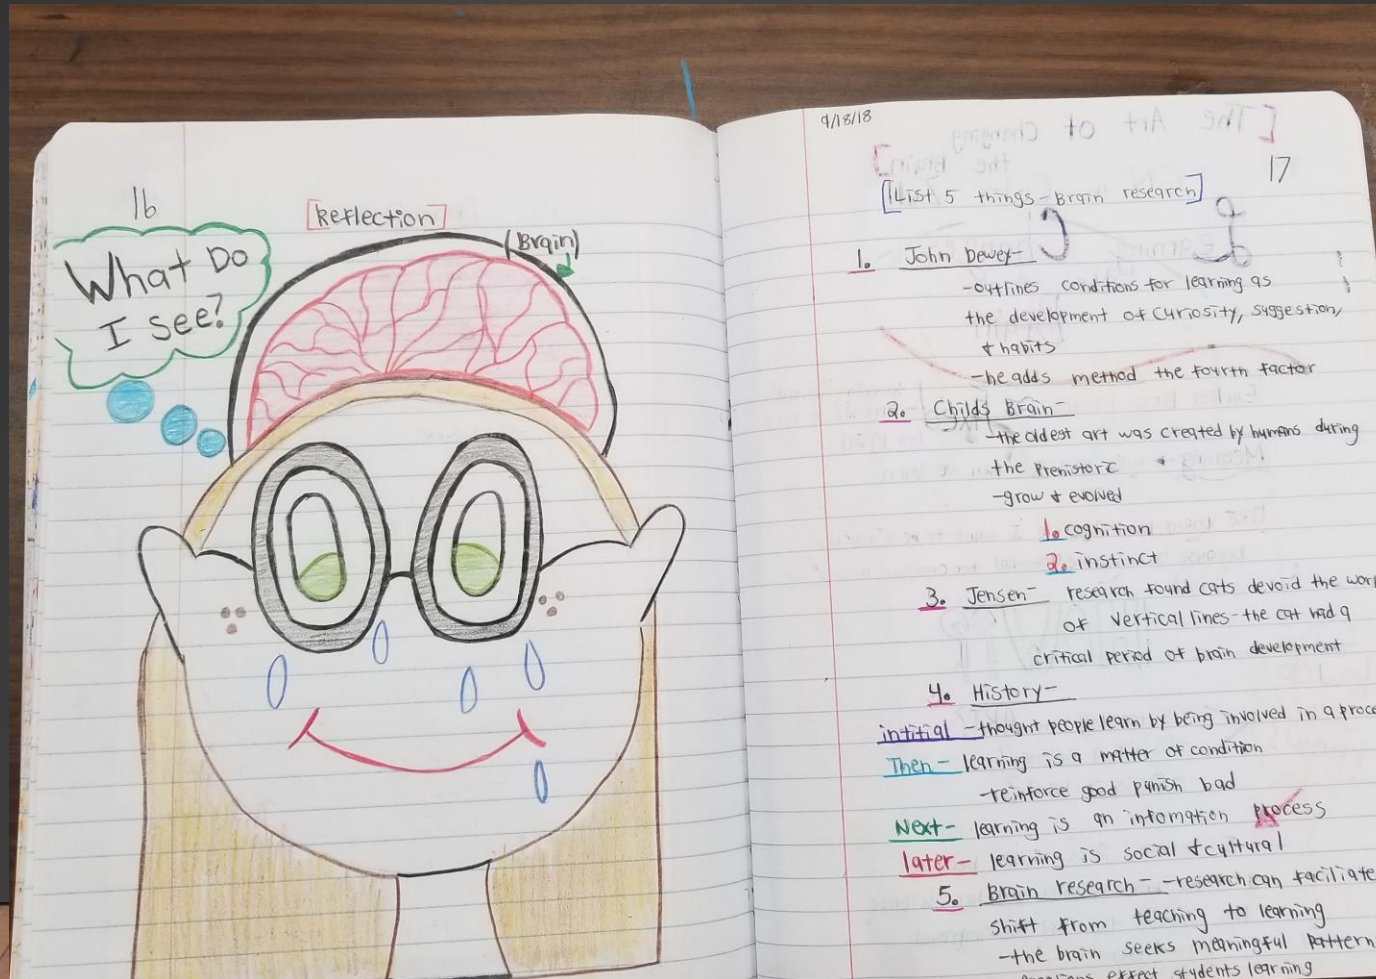 16
[Reflection]
(Brain)
What Do
I see?
9/18/18
[The Art of Changing
the Brain]
17
[List 5 things - Brain research]
1. John Dewey-
-outlines conditions for learning as
the development of curiosity, suggestion,
+ habits
-he adds method the fourth factor
2. Childs Brain-
-the oldest art was created by humans during
the Prehistoric
-grow + evolved
1. cognition
2. instinct
3. Jensen- research found cats devoid the wor
of vertical lines - the cat had a
critical period of brain development
4. History-
intitial - thought people learn by being involved in a proce
Then - learning is a matter of condition
-reinforce good punish bad
Next- learning is an infomation process
later- learning is social + cultural
5. Brain research - -research can faciliate
shift from teaching to learning
-the brain seeks meaningful pattern
effect students learning